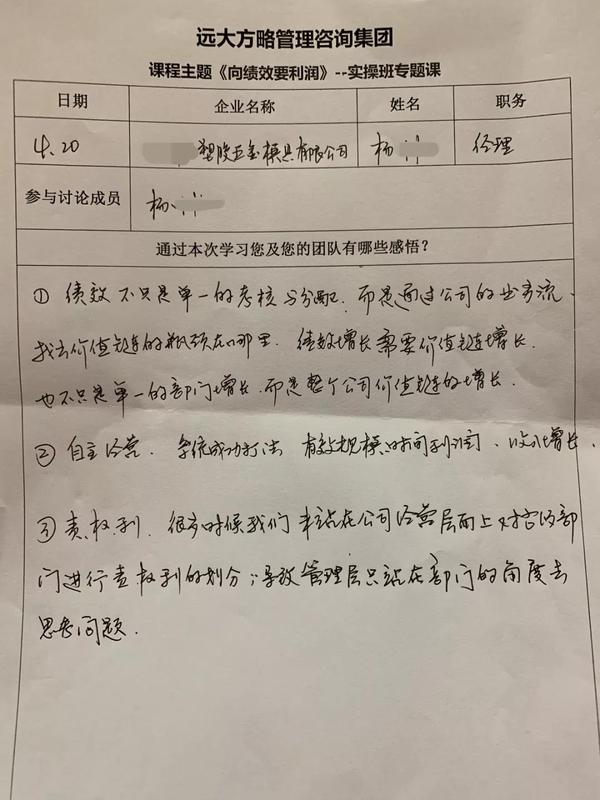 远大方略管理咨询集团
课程主题《向绩效要利润》--实操班专题课
日期 企业名称 姓名 职务
4.20 塑胶五金模具有限公司 杨 经理
参与讨论成员 杨
通过本次学习您及您的团队有哪些感悟？
① 绩效不只是单一的考核与分配.而是通过公司的业务流.
找出价值链的瓶颈在哪里. 绩效增长需要价值链增长.
也不只是单一的部门增长.而是整个公司价值链的增长.
② 自主经营. 系统成功打法 有效规模时间利润、收入增长.
③ 责权利. 很多时候我们未站在公司经营层面上对各部
门进行责权利的划分;导致管理层只站在部门的角度去
思考问题.